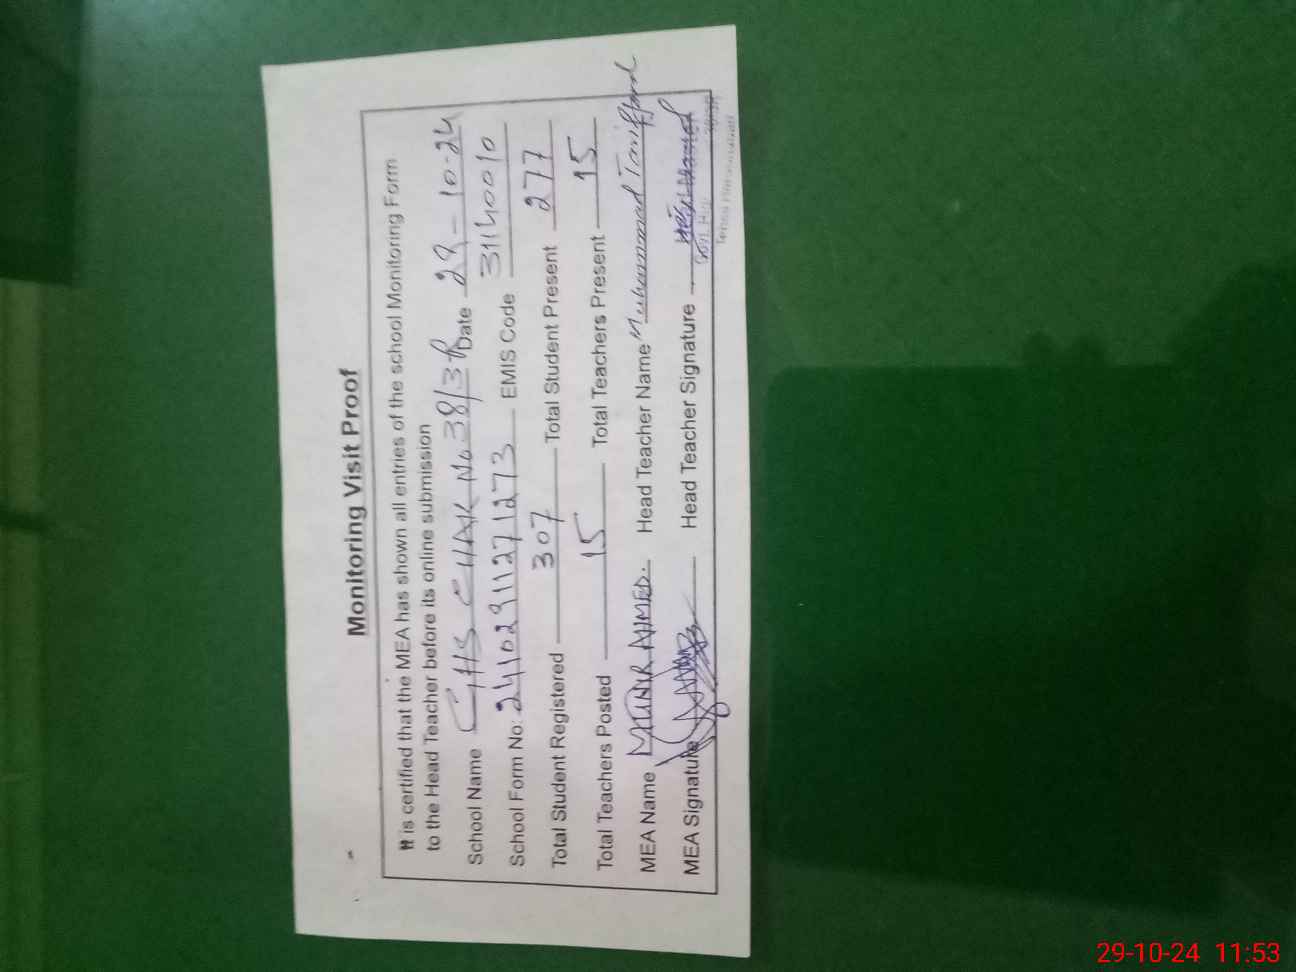 Monitoring Visit Proof
It is certified that the MEA has shown all entries of the school Monitoring Form
to the Head Teacher before its online submission
School Name GHS CHAK No 38/3R Date 29-10-24
School Form No: 24102911271273 EMIS Code 31140010
Total Student Registered 307 Total Student Present 277
Total Teachers Posted 15 Total Teachers Present 15
MEA Name MUNIR AHMED. Head Teacher Name Muhammad
MEA Signature Head Teacher Signature
Govt. High
29-10-24 11:53